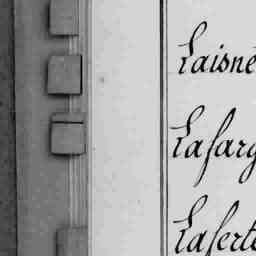 Laisné
Lafarg
Laferte